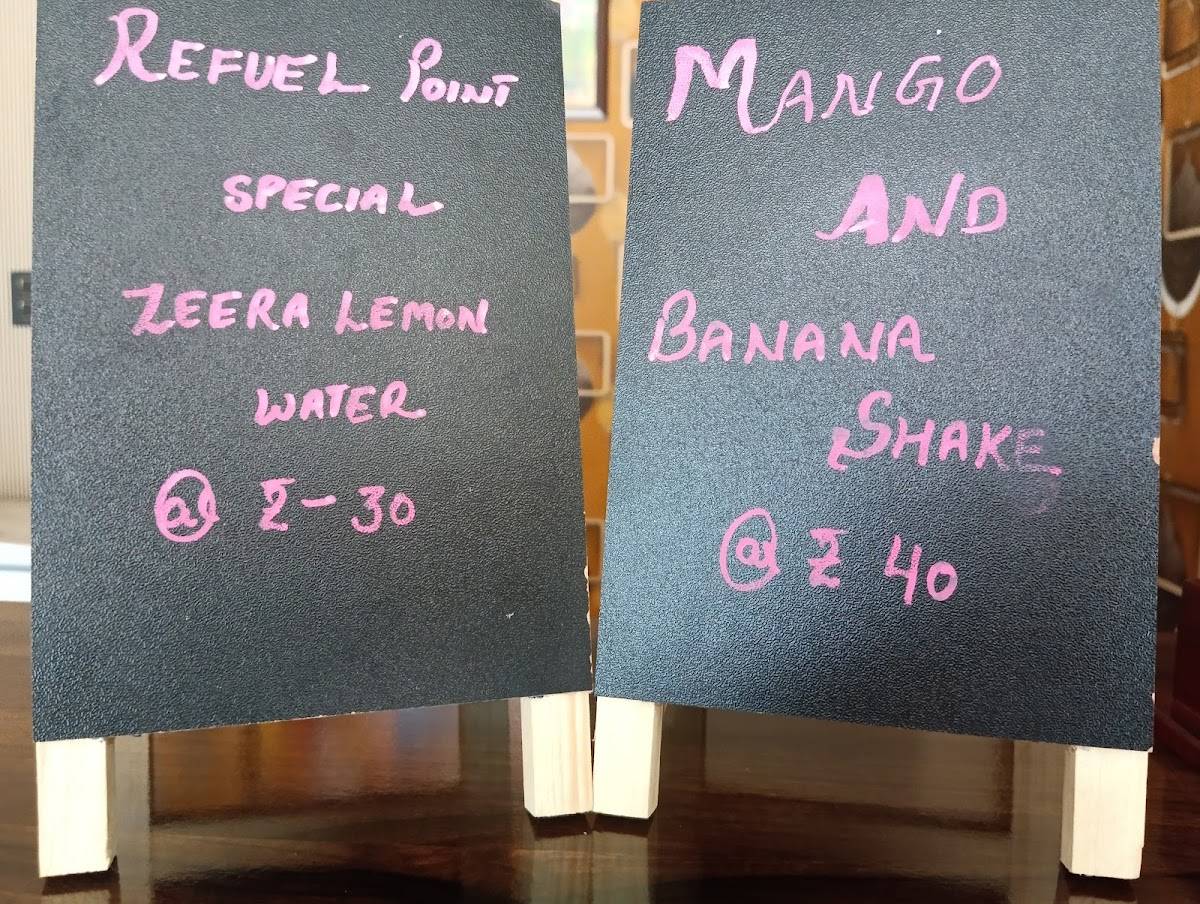 REFUEL POINT
SPECIAL
ZEERA LEMON
WATER
@ ₹-30
MANGO
AND
BANANA
SHAKE
@ ₹ 40